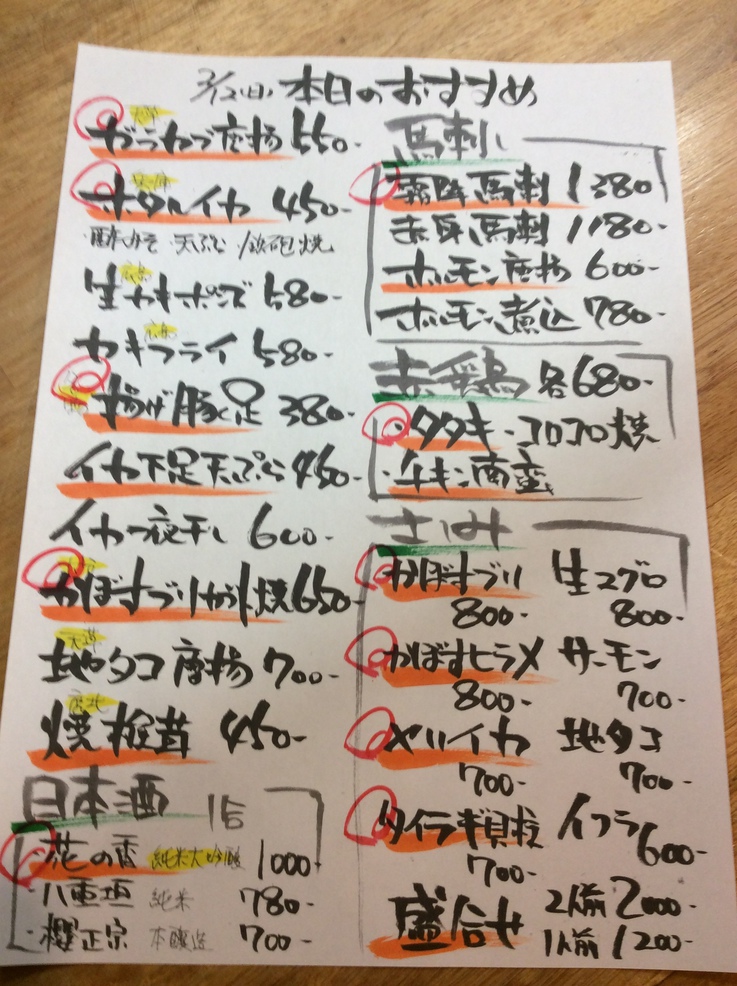 3/12(日) 本日のおすすめ
天草
ガラカブ唐揚 550-
ホタルイカ 450-
・酢みそ ・天ぷら /鉄砲焼
生カキポン酢 580-
カキフライ 580-
揚げ豚足 380-
イカ下足天ぷら 450-
イカ一夜干し 600-
かぼすブリカルト焼 650-
天草
地タコ唐揚 700-
焼椎茸 450-
日本酒 1合
・花の香 純米大吟醸 1000
・八重垣 純米 780-
・櫻正宗 本醸造 700-
馬刺し
霜降馬刺 1380
赤身馬刺 1180-
ホルモン唐揚 600-
ホルモン煮込 780-
赤鶏 各680-
・タタキ ・コロコロ焼
・チキン南蛮
さしみ
かぼすブリ 生マグロ
800- 800-
かぼすヒラメ サーモン
800- 700-
ヤリイカ 地タコ
700- 700-
タイラギ貝柱 イクラ 600-
700-
盛合せ 2人前 2000-
1人前 1200-